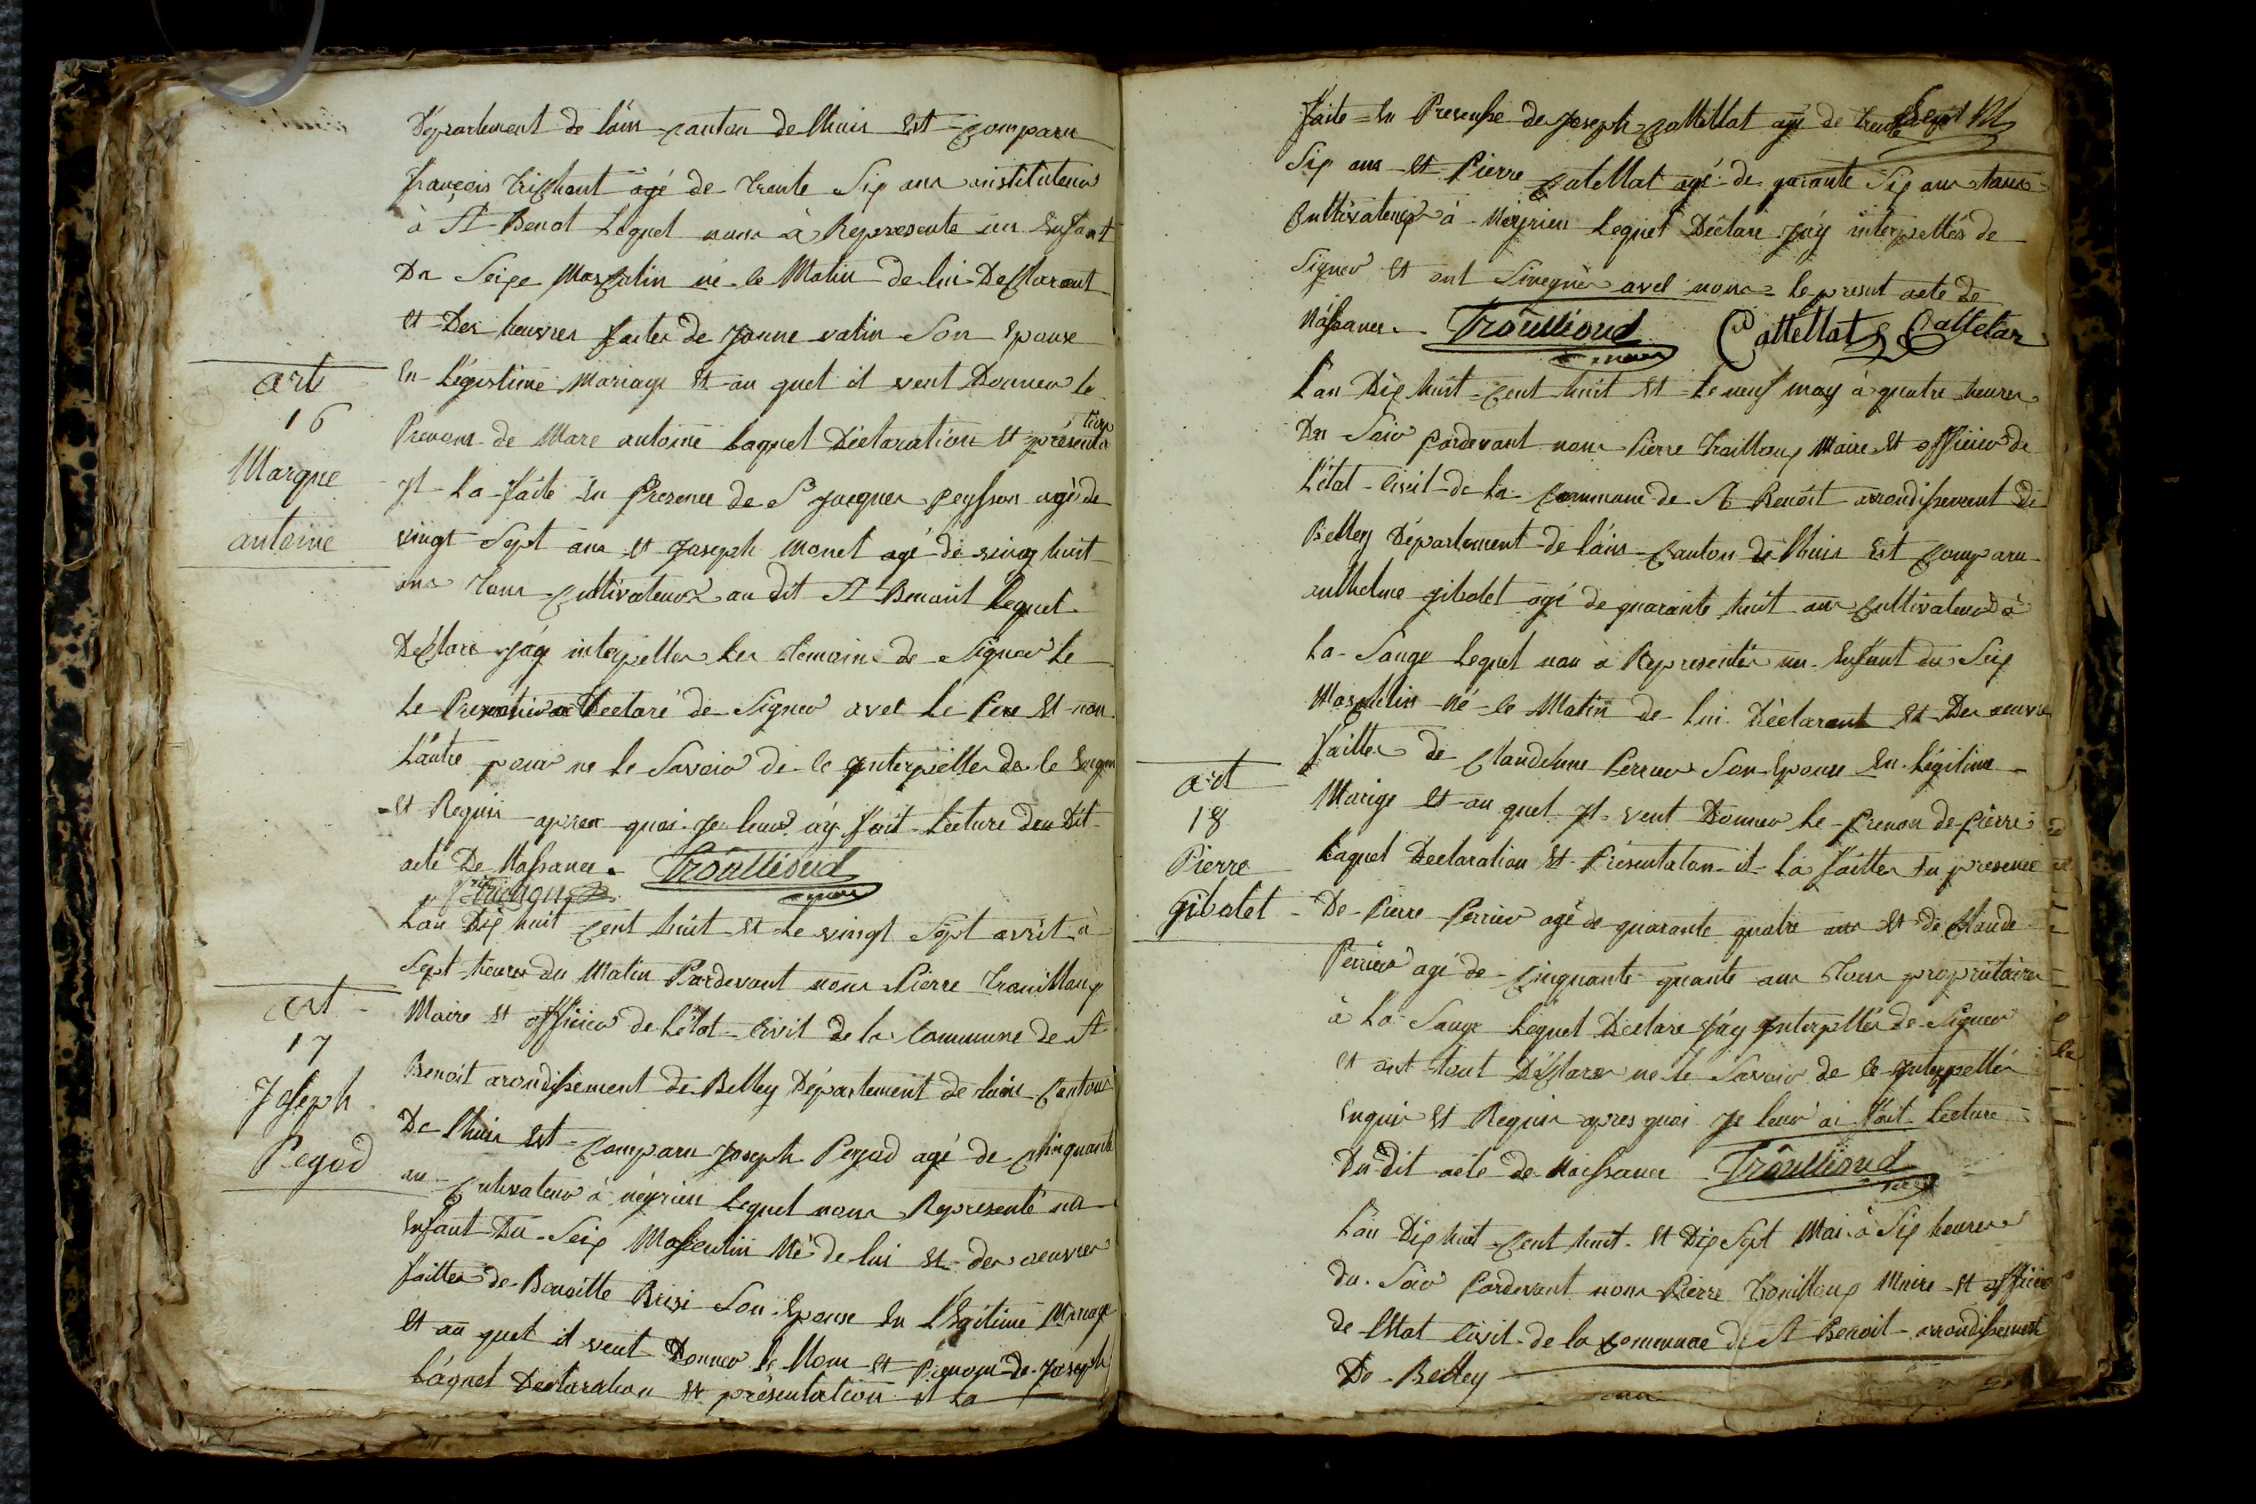 Département de lain canton de lhuis Est comparu
françois trichont agé de trante Six ans instituteur
à St Benot Lequel nous à Represente un Enfant
Du Seixe Mascalin né le Matin de lui Desclarant
et Des heuvres faites de Janne vatin Son Epouse
En Légistime Mariage Et au quel il veut Donner le
Prenom de Marc antoine laquel Déclaration Et présenta
tion
Jl La faite En Presence de Sr Jacques peysson agé de
vingt Sept ans et Joseph Monet agé de vingt huit
ans tous cultivateur au dit St Benoit Lequel
Desclare Jáy interpeller Les temoins de Signer Le
Le Premier a Declaré de Signer avec Le Pere Et non
Lautre pour ne le Savoir de ce Jnterpeller de le
Et Requis apres quoi Je leur áy fait Lecture du Dit
acte De Naissance. Trouilloud
maire
trichon
art
16
Margue
antoine
Lan Dix huit cent huit Et Le vingt Sept avril à
Sept heures du Matin Pardevant nous Pierre trouilloux
Maire Et officier de Létat Civil de la Commune de St
Benoit arondissement de Belley Département de lain Canton
De lhuis Est comparu Joseph Pegod agé de cinquante
an cultivateur á néyrieu Lequel nous Represente un
Enfant Du Seix Masculin Né de lui Et des oeuvres
faittes de Benoitte Brisi Son Epouse En Légitime Mariage
Et au quel il veut Donner Le Nom et Prenom de Joseph
Láquel Declaration Et présentation il La
art
17
Joseph
Pegod
faite En Presense de Joseph cattellat agé de trente
Six ans Et Pierre catellat agé de quarante Six ans tous
Cultivateur à Néyrieu Lequel Déclare Jáy interpellés de
Signer Et ont Sinegné avec nous Le present acte de
Naissance. Trouilloud Cattellat Cattelar
maire
Lan Dix huit cent huit Et Le neuf may à quatre heures
Du Soir Pardevant nous Pierre trouilloux Maire Et officier de
L'état Civil de La commune de St Benoit arrondissement De
Belley Département de láin canton de lhuis Est comparu
anthelme gibolet agé de quarante huit ans cultivateur à
La Sauge Lequel nou à Representé un Enfant du Seix
Masculin Né le Matin de Lui Déclarant Et Des oeuvre
faittes de claudeinne Perrier Son Epouse En Légitime
Marige Et au quel Jl veut Donner Le Prenom de Pierre
Laquel Declaration Et Présentatan il La faitte En presence
De Pierre Perrier agé de quarante quatre ans Et de Claude
Perrier agé de cinquante quante ans tous propriétaires
à La Sauge Lequel Déclare Jáy Jnterpellés de Signer
et ont tout Desclare ne le Savoir de ce Jnterpellés
Enquis Et Requis apres quoi Je leur ai Fait Lecture
Du dit acte de Naissance Trouilloud
maire
art
18
Pierre
gibolet
Lan Dix huit cent huit Et Dix Sept Mai à Six heures
du Soir Pardevant nous Pierre trouilloux Maire Et officier
de létat Civil de la commune de St Benoit arrondissement
De Belley